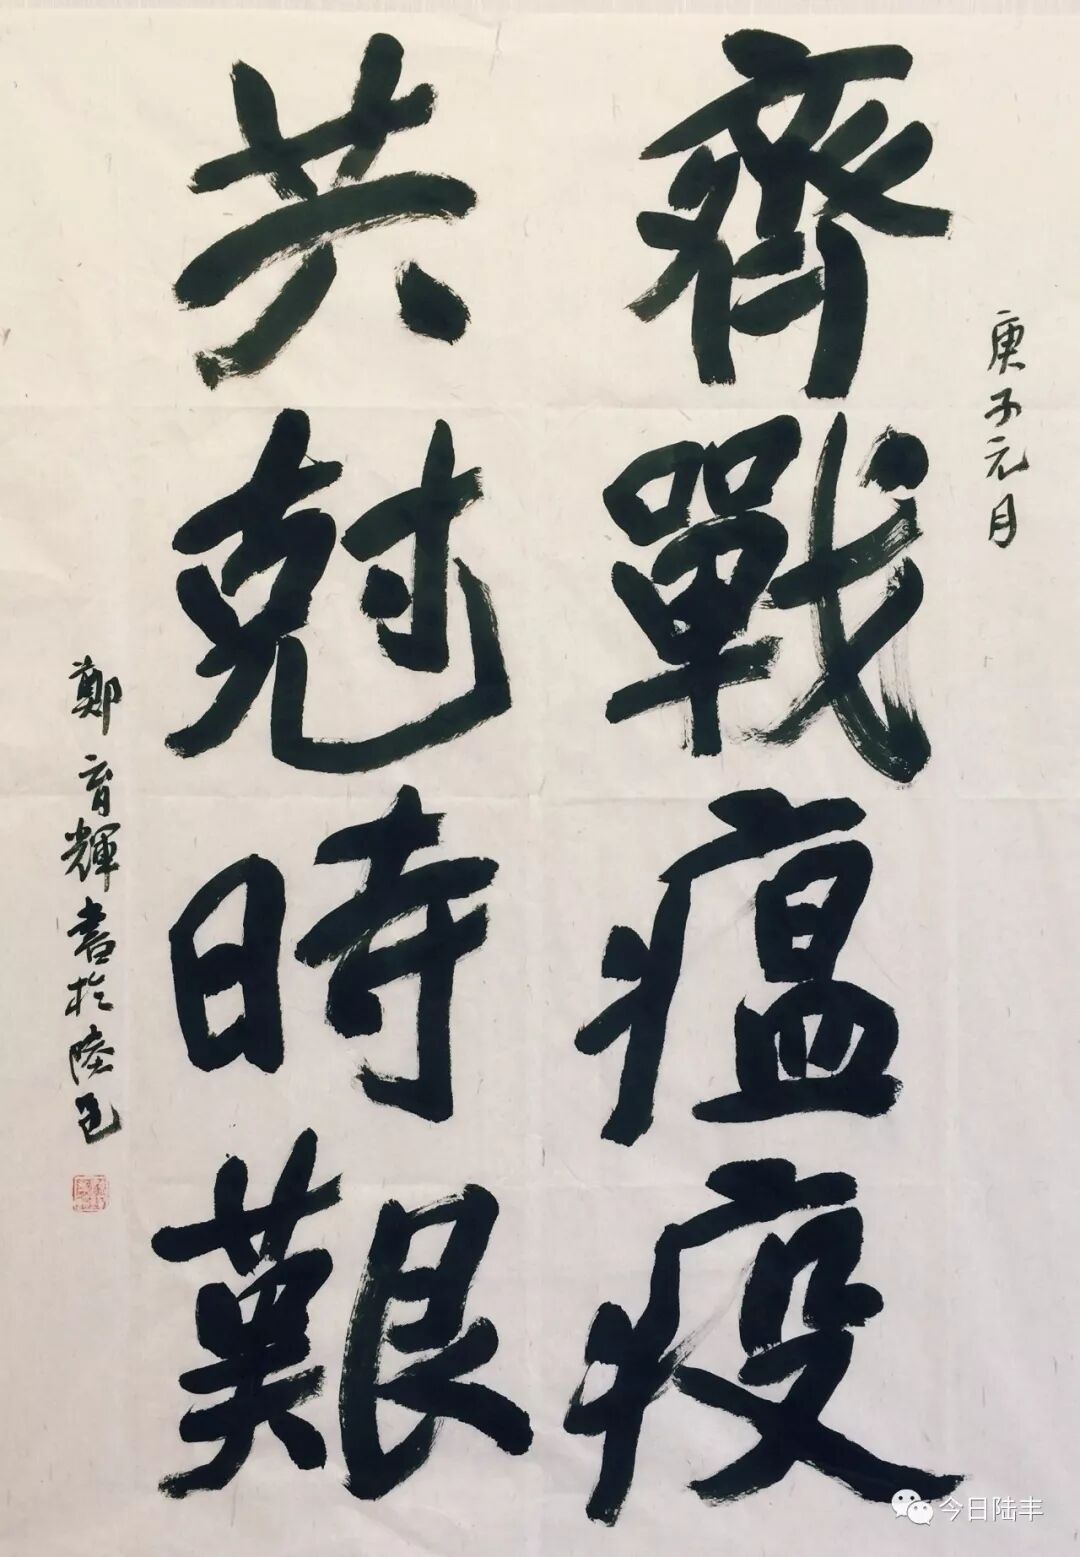 庚子元月
齊戰瘟疫
共尅時艱
鄭育輝書於陸邑
今日陆丰